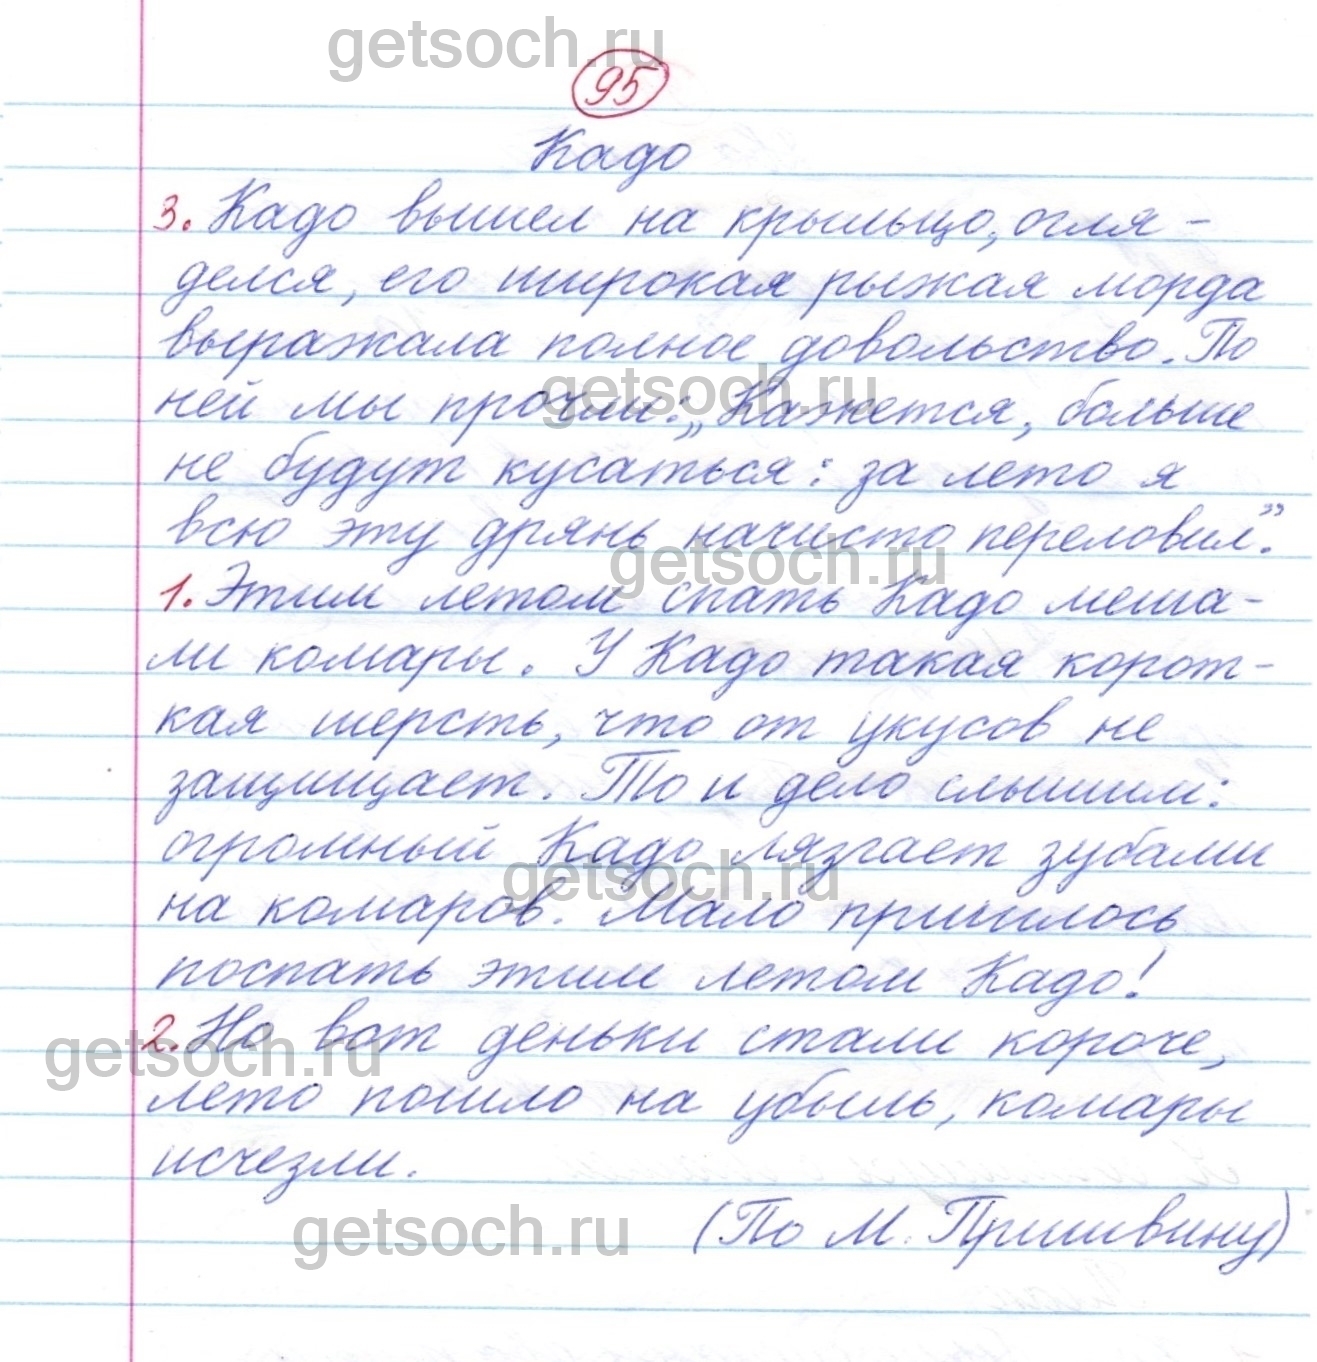 getsoch.ru
95
Кадо
3. Кадо вышел на крыльцо, огля-
делся, его широкая рыжая морда
выражала полное довольство. По
getsoch.ru
ней мы прочли: „Кажется, больше
не будут кусаться: за лето я
всю эту дрянь начисто переловил”.
getsoch.ru
1. Этим летом спать Кадо меша-
ли комары. У Кадо такая корот-
кая шерсть, что от укусов не
защищает. То и дело слышим:
огромный Кадо лязгает зубами
getsoch.ru
на комаров. Мало пришлось
поспать этим летом Кадо!
2. Но вот деньки стали короче,
getsoch.ru
лето пошло на убыль, комары
исчезли.
getsoch.ru
(По М. Пришвину)